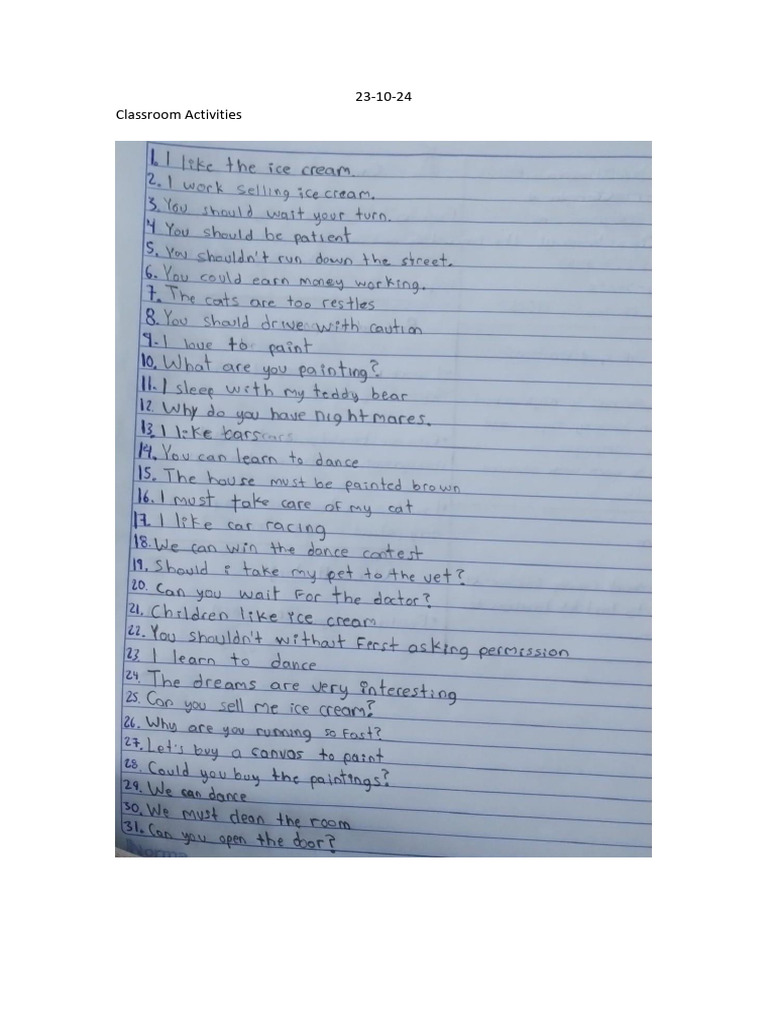 23-10-24
Classroom Activities
1. I like the ice cream.
2. I work selling ice cream.
3. You should wait your turn.
4 You should be patient
5. You shouldn't run down the street.
6. You could earn money working.
7. The cats are too restles
8. You should drive with caution
9. I love to paint
10. What are you painting?
11. I sleep with my teddy bear
12. Why do you have nightmares.
13. I like cars
14. You can learn to dance
15. The house must be painted brown
16. I must take care of my cat
17. I like car racing
18. We can win the dance contest
19. Should i take my pet to the vet?
20. Can you wait For the doctor?
21. Children like ice cream
22. You shouldn't without First asking permission
23 I learn to dance
24. The dreams are very interesting
25. Can you sell me ice cream?
26. Why are you running so Fast?
27. Let's buy a canvas to paint
28. Could you buy the paintings?
29. We can dance
30. We must clean the room
31. Can you open the door?
Norma